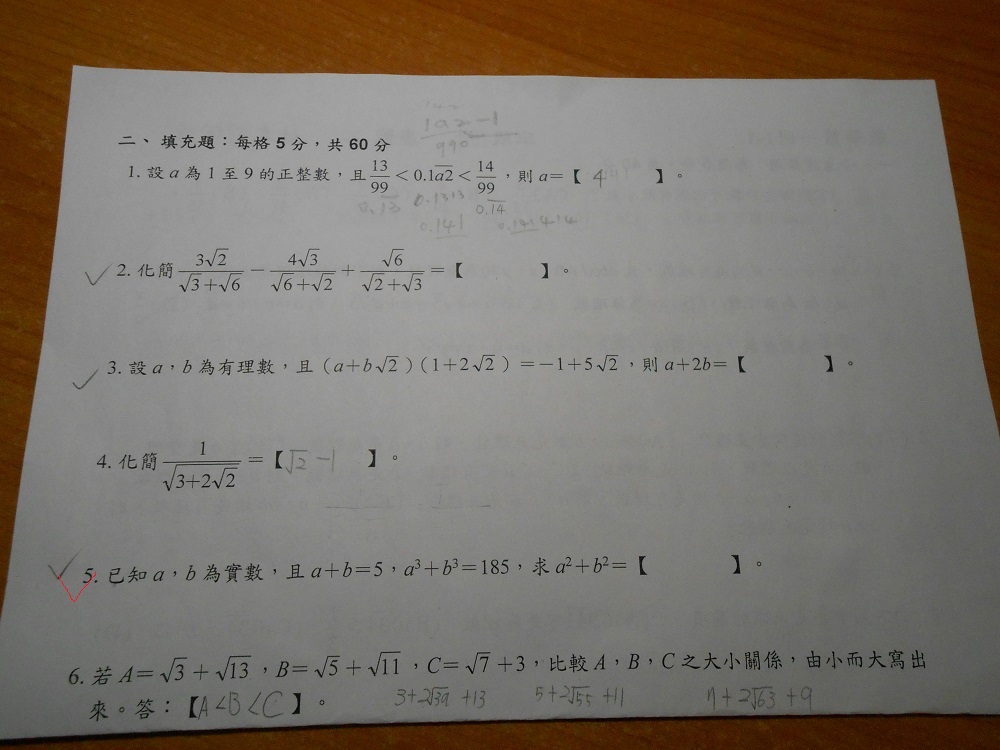 1a2-1
990
二、填充題：每格 5 分，共 60 分
1. 設 a 為 1 至 9 的正整數，且 \frac{13}{99} < 0.1\overline{a2} < \frac{14}{99}，則 a=【 4 】。
0.\overline{13} 0.1313 0.\overline{14}
0.141 0.141414
2. 化簡 \frac{3√2}{√3+√6} − \frac{4√3}{√6+√2} + \frac{√6}{√2+√3} =【 】。
3. 設 a，b 為有理數，且（a+b√2）（1+2√2）=−1+5√2，則 a+2b=【 】。
4. 化簡 \frac{1}{\sqrt{3+2√2}} =【√2-1 】。
5. 已知 a，b 為實數，且 a+b=5，a³+b³=185，求 a²+b²=【 】。
6. 若 A=√3+√13，B=√5+√11，C=√7+3，比較 A，B，C 之大小關係，由小而大寫出
來。答：【A<B<C】。 3+2√39+13 5+2√55+11 7+2√63+9